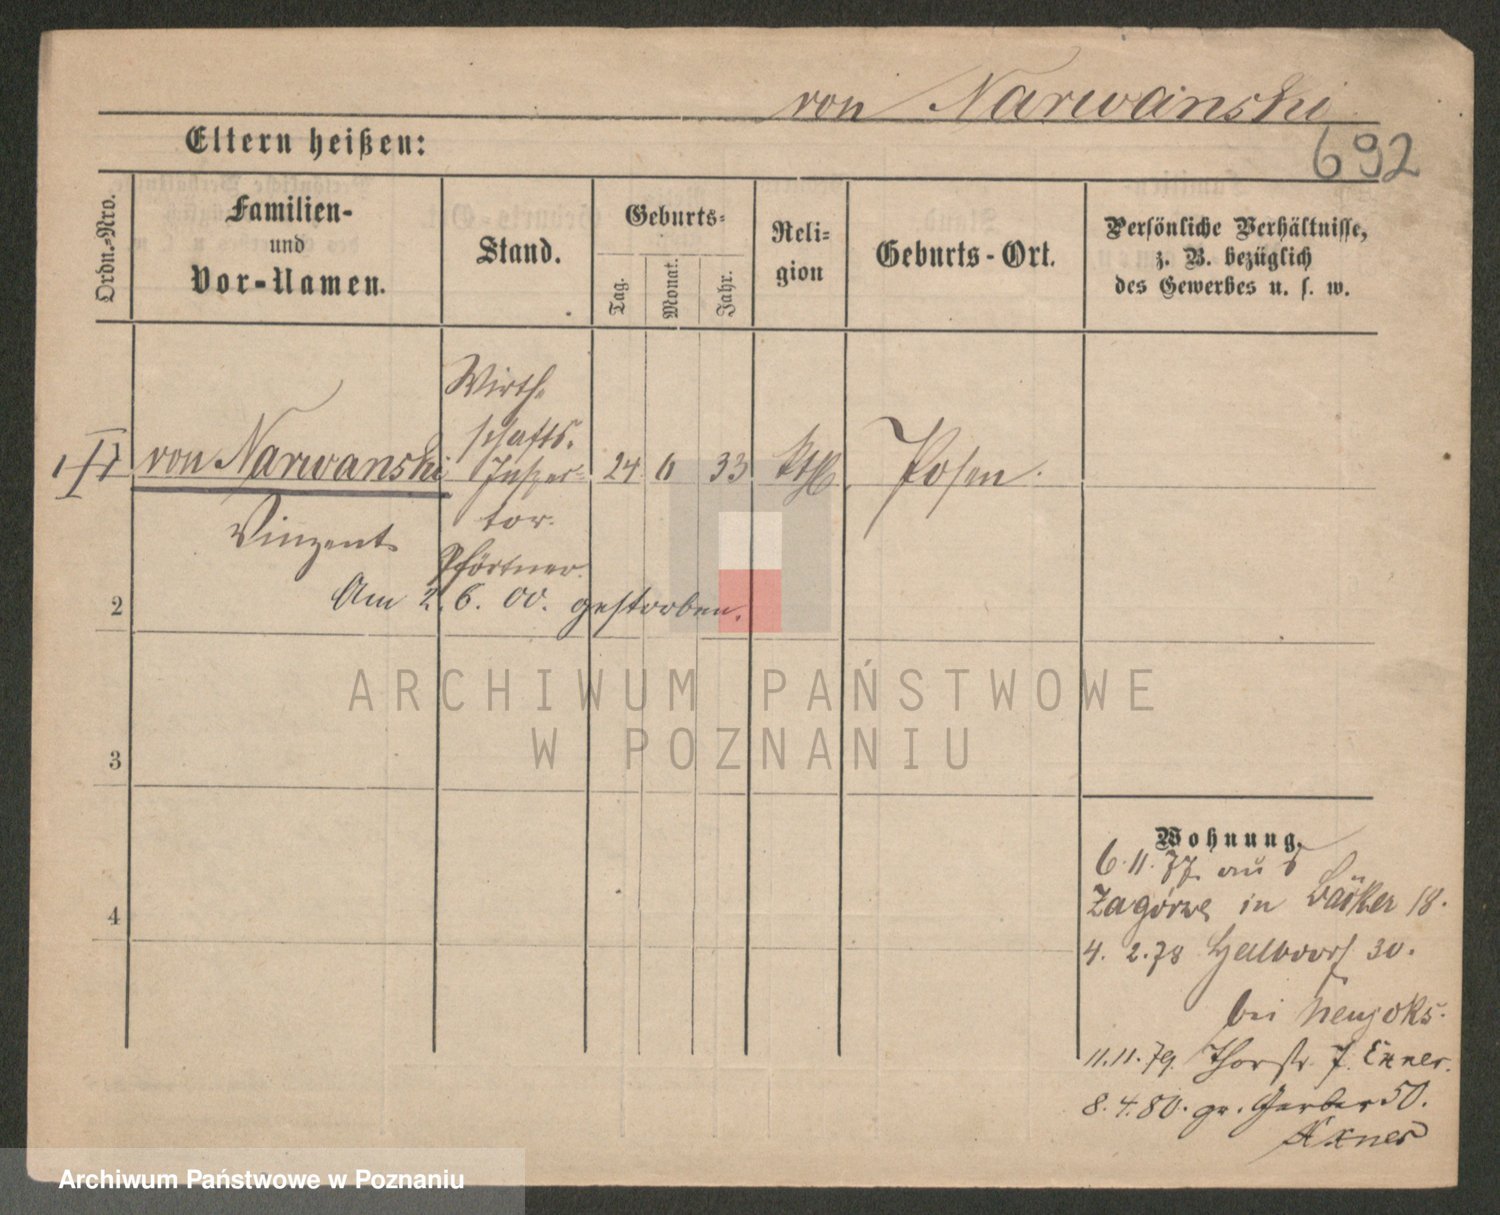 von Narwanski
692
Eltern heißen:
Ordn.-Nro.
Familien-
und
Vor-Namen.
Stand.
Geburts-
Tag.
Monat.
Jahr.
Reli-
gion
Geburts-Ort.
Persönliche Verhältnisse,
z. B. bezüglich
des Gewerbes u. s. w.
von Narwanski
Vinzent
Wirth-
schafts-
Inspec-
tor.
Pförtner.
24 6 33 kth Posen.
Am 2.6.00. gestorben.
2
3
4
ARCHIWUM PAŃSTWOWE
W POZNANIU
Wohnung.
6.11.77 aus
Zagórze in Bäcker 18.
4.2.78 Halbdorf 30.
bei
11.11.79. Thorstr. 7. Exner.
8.4.80. gr. Gerber 50.
Exner
Archiwum Państwowe w Poznaniu